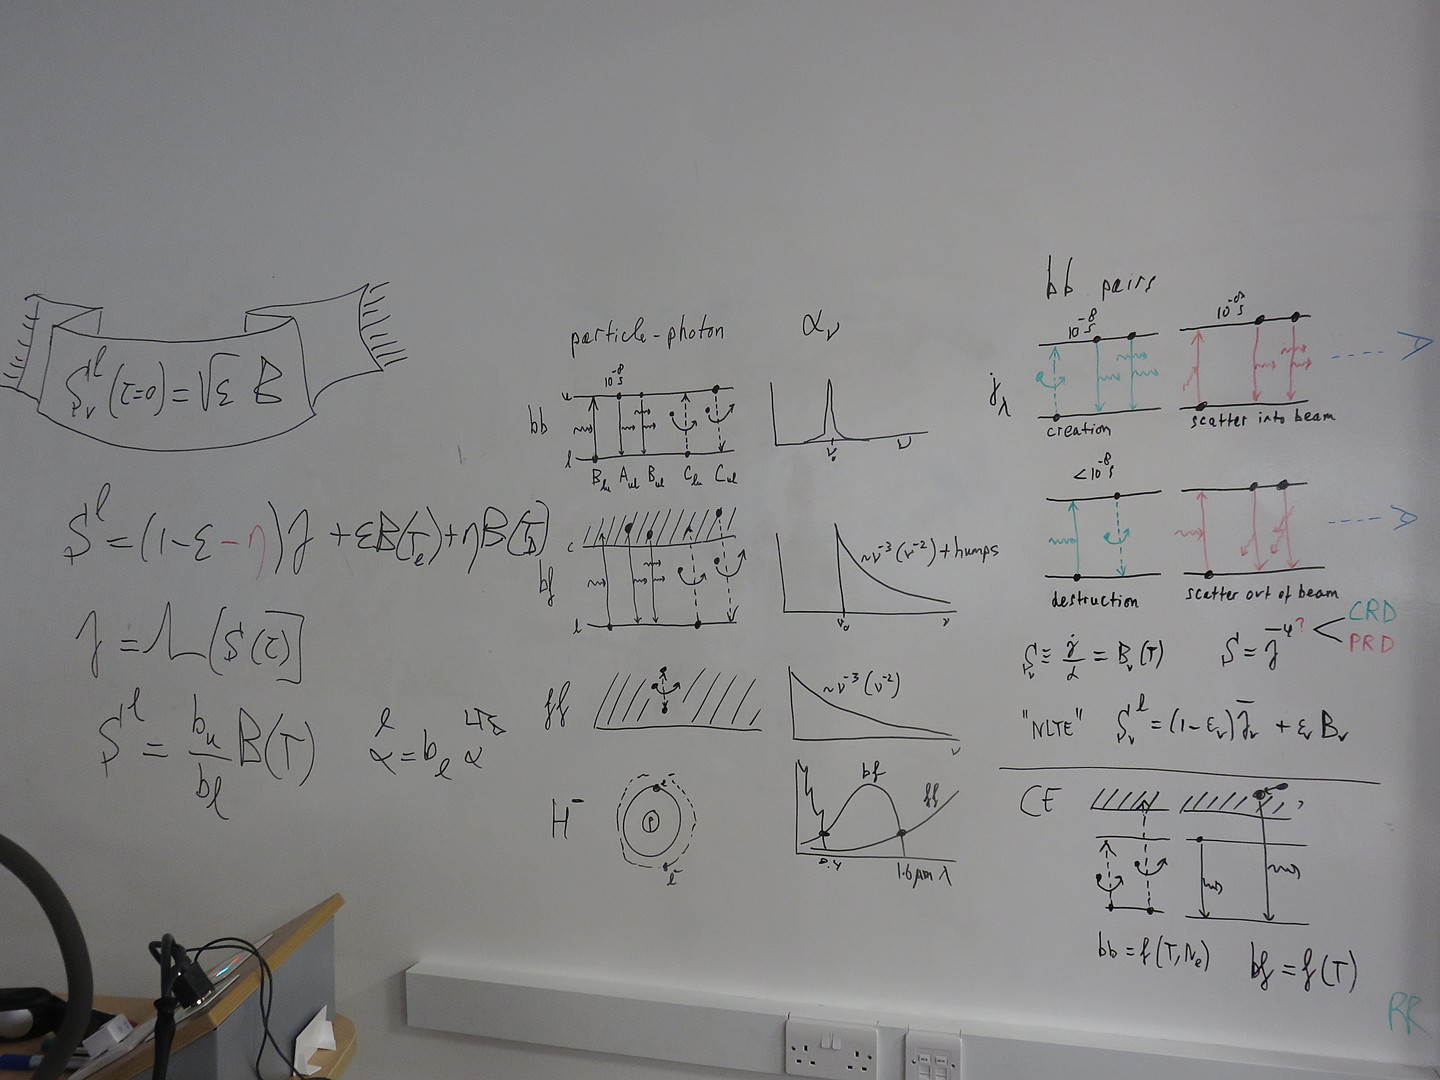 S_ν^l (τ=0) = √ε B
S^l = (1-ε-η)J + εB(T_e) + ηB(T_
J = Λ[S(τ)]
S^l = b_u/b_l B(T)
α^l = b_l α^LTE
particle-photon
α_ν
bb
10^-8 s
u
l
B_lu A_ul B_ul C_lu C_ul
ν_0
ν
bf
c
l
~ν^-3 (ν^-2) + humps
ν_0
ν
ff
~ν^-3 (ν^-2)
ν
H^-
p
e^-
bf
ff
0.4
1.6 μm λ
bb pairs
j_λ
10^-8 s
10^-8 s
creation
scatter into beam
<10^-8 s
destruction
scatter out of beam
S_ν ≡ j/α = B_ν(T)
?
CRD
PRD
"NLTE" S_ν^l = (1-ε_ν) J̄_ν + ε_ν B_ν
CE
bb = f(T,N_e)
bf = f(T)
RR